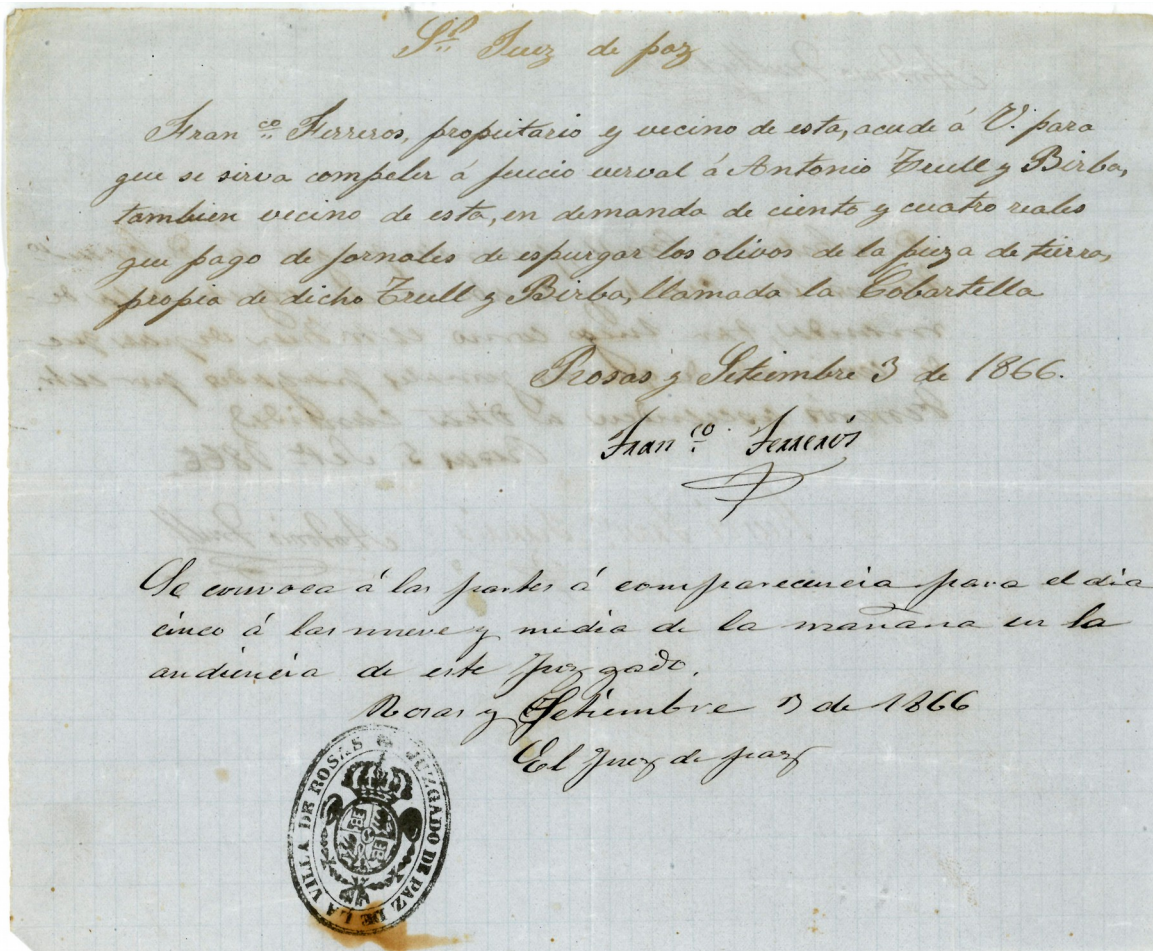 Sr. Juez de paz
Fran.co Ferreros, propietario y vecino de esta, acude á V. para
que se sirva compeler á juicio verval á Antonio Trull y Birba,
tambien vecino de esta, en demanda de ciento y cuatro reales
que pago de jornales de espurgar los olivos de la pieza de tierra,
propia de dicho Trull y Birba, llamada la Cobartella
Rosas y Setiembre 3 de 1866.
Fran.co Ferrerós
Se convoca á las partes á comparecencia para el dia
cinco á las nueve y media de la mañana en la
audiencia de este Juzgado.
Rosas y Setiembre 3 de 1866
El Juez de paz
JUZGADO DE PAZ DE LA VILLA DE ROSAS